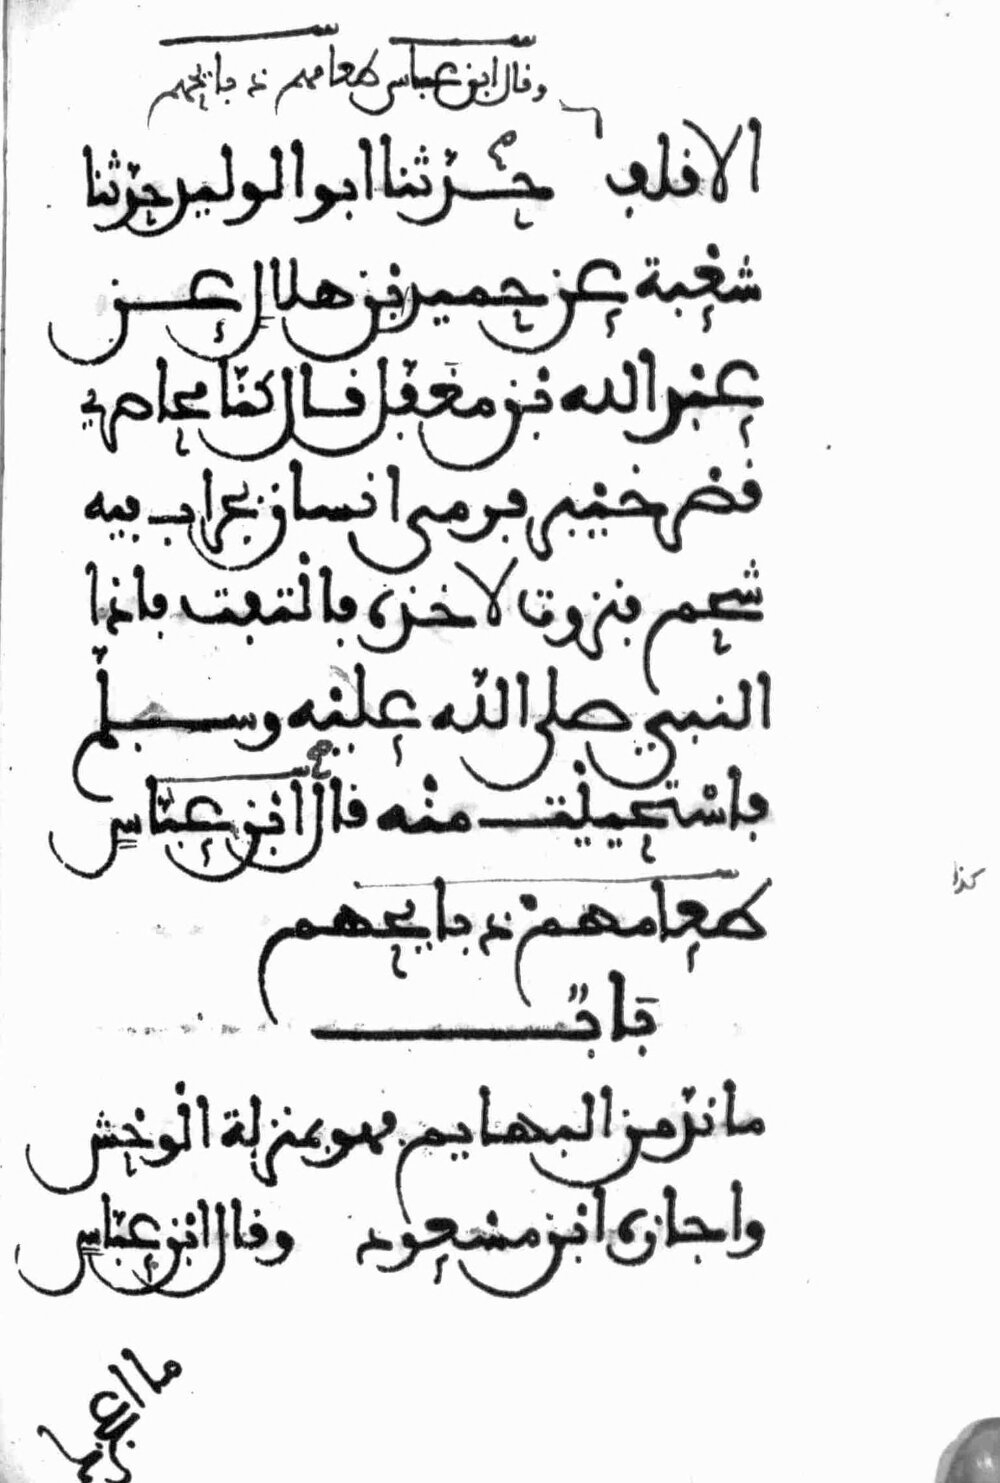 وقال ابن عباس طعامهم ذبايحهم
الاقلف حدثنا ابو الوليد حدثنا
شعبة عن حميد بن هلال عن
عبد الله بن مغفل قال كنا محاصري
قصر خيبر فرمى انسان بجراب فيه
شحم فنزوت لاخذه فالتفت فاذا
النبي صلى الله عليه وسلم
فاستحييت منه قال ابن عباس
طعامهم ذبايحهم
باب
ما ند من البهايم فهو بمنزلة الوحش
واجازه ابن مسعود وقال ابن عباس
كذا
ما ا